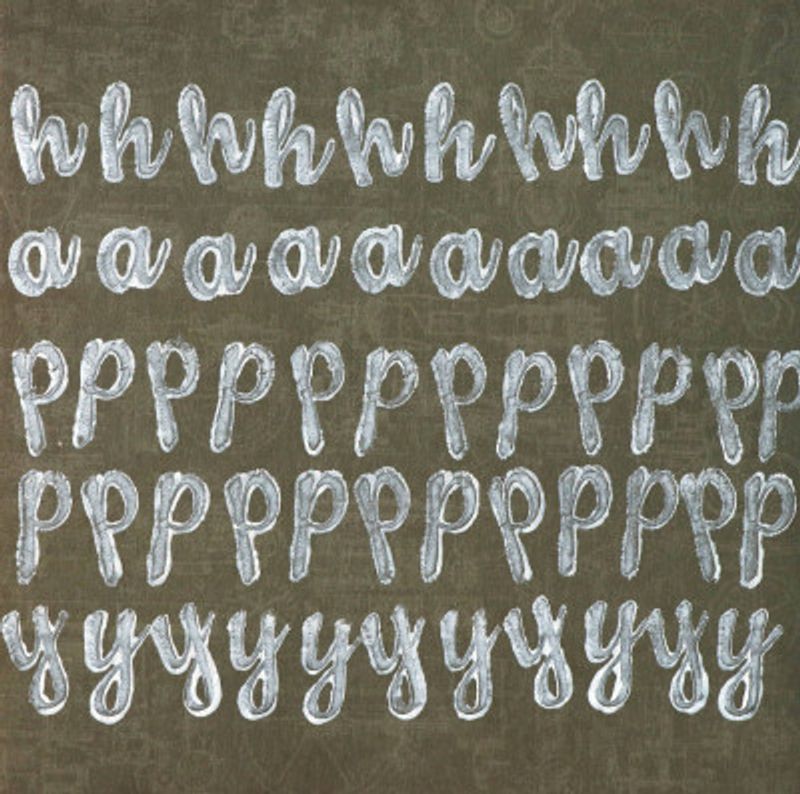 hhhhhhhhhh
aaaaaaaaaa
pppppppppppp
pppppppppppp
yyyyyyyyyyy